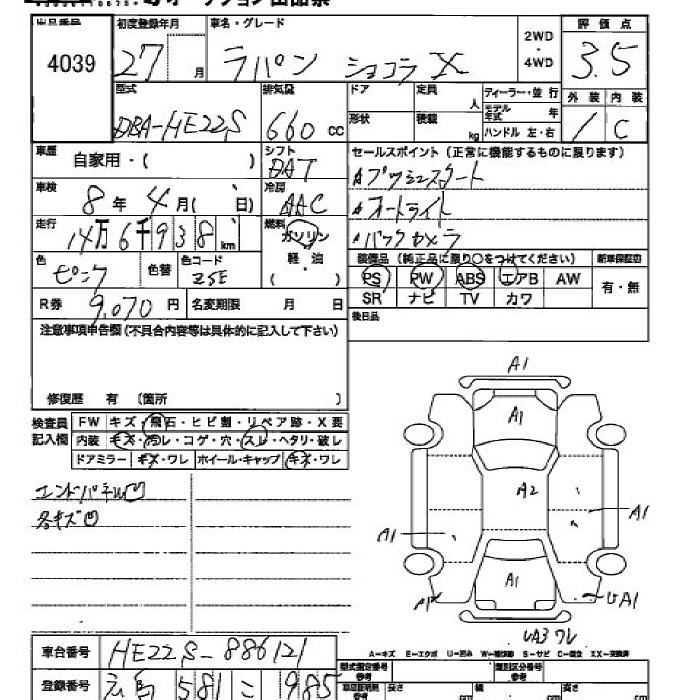 出品番号 初度登録年月 車名・グレード 評価点
4039 27 月 ラパン ショコラ X 2WD・4WD 3.5
型式 排気量 ドア 定員 人 ディーラー・並行 外装 内装
DBA-HE22S 660 cc 形状 積載 kg モデル年式 年 ハンドル 左・右 / C
車歴 自家用・( ) シフト DAT セールスポイント(正常に機能するものに限ります)
車検 8年 4月( 日) 冷房 AAC プッシュスタート
走行 14万6千938 km 燃料 ガソリン オートライト
軽・油 バックカメラ
色 ピンク 色替 色コード ZSE ( ) 装備品(純正品に限り○をつけてください) 新車保証書
PS PW ABS エアB AW 有・無
R券 9,070円 名変期限 月 日 SR ナビ TV カワ
注意事項申告欄(不具合内容等は具体的に記入して下さい) 後日品
修復歴 有 (箇所 )
検査員記入欄 FW キズ・飛石・ヒビ割・リペア跡・X要
内装 キズ・汚レ・コゲ・穴・スレ・ヘタリ・破レ
ドアミラー キズ・ワレ ホイール・キャップ キズ・ワレ
エンドパネルU
各キズU
A1
A1
A2
A1
A1
A1
UA1
UA3 ワレ
A-キズ E-エクボ U-凹み W-補修跡 S-サビ C-腐食 XX-交換済
車台番号 HE22S-886121 型式指定番号 参考 類別区分番号 参考
登録番号 581 985 長さ cm 幅 cm 高さ cm